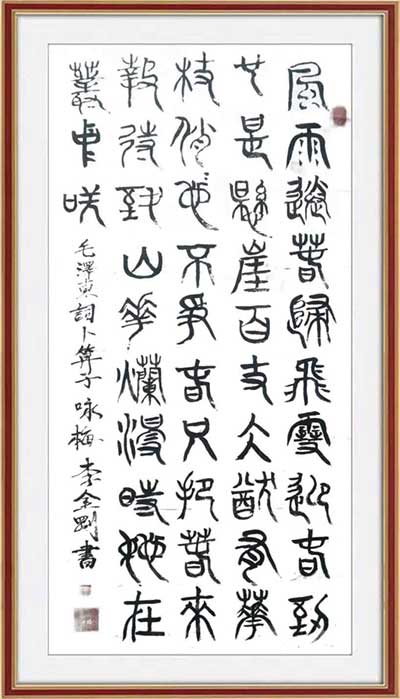 風雨送春歸飛雪迎春到
已是懸崖百丈仌猷有華
枝俏〻也不爭春只把春來
報待到山華爛漫時她在
叢中咲
毛澤東詞卜算子咏梅李金剛書